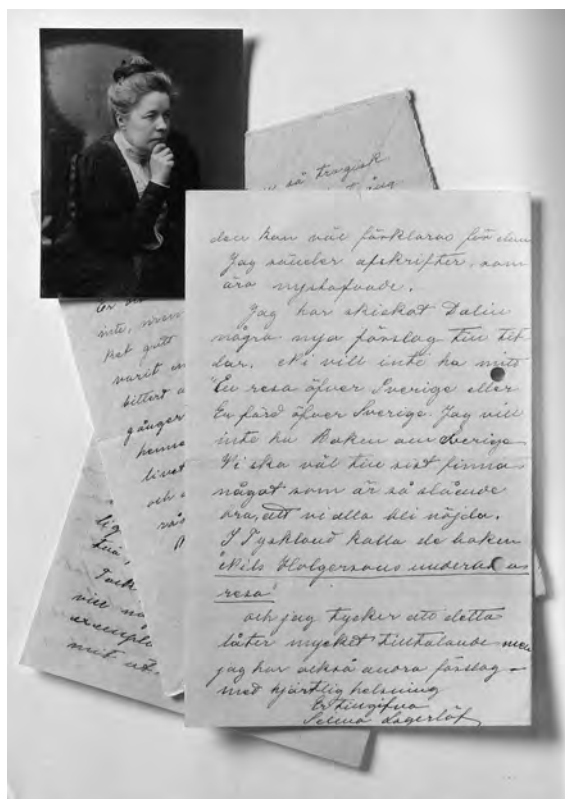 så tragisk
den kan väl förklaras för dem
Jag sänder afskrifter, som
äro nystafvade.
Jag har skickat Dalin
några nya förslag till tit-
lar. Ni vill inte ha mitt
"En resa öfver Sverige eller
En färd öfver Sverige. Jag vill
inte ha Boken om Sverige
Vi ska väl till sist finna
något som är så slående
bra, att vi alla bli nöjda.
I Tyskland kalla de boken
Nils Holgerssons underbara
resa"
och jag tycker att detta
låter mycket tilltalande men
jag har också andra förslag –
med hjärtlig helsning
Er tillgifna
Selma Lagerlöf
inte,
gått
varit
bittert
gånger
henne
livet
och
Tack
vill
mit